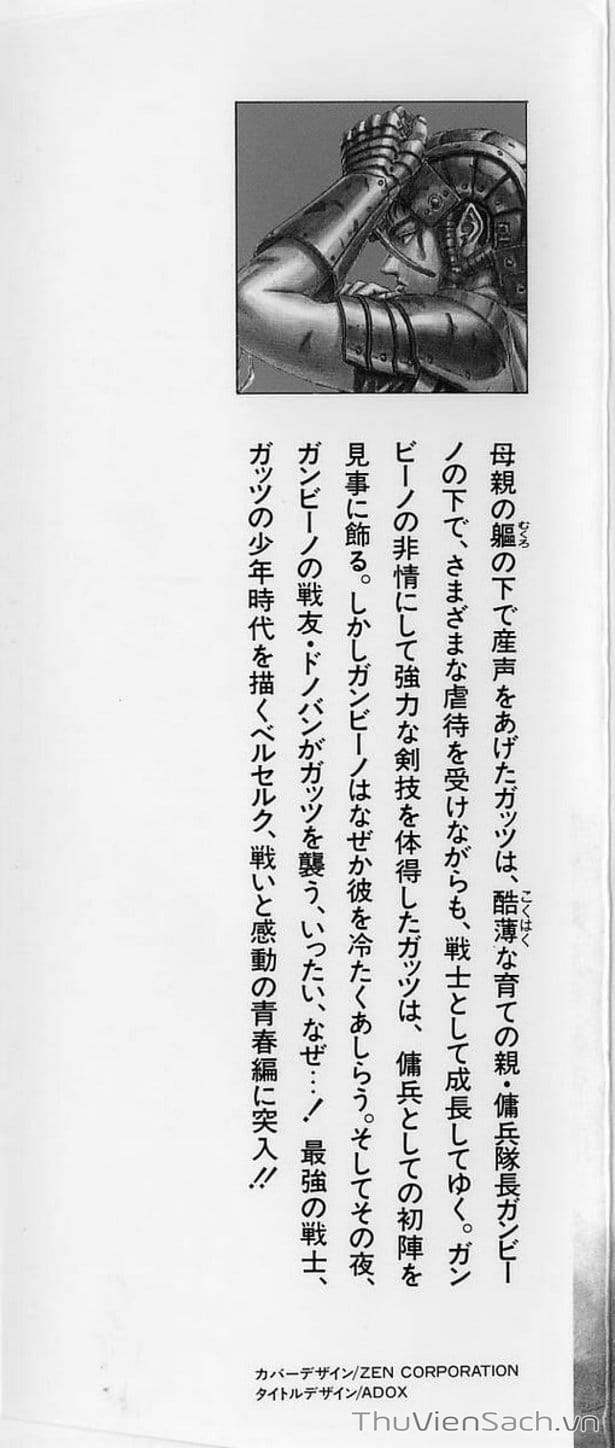 母親の軀の下で産声をあげたガッツは、酷薄な育ての親・傭兵隊長ガンビー
むくろ
こくはく
ノの下で、さまざまな虐待を受けながらも、戦士として成長してゆく。ガン
ビーノの非情にして強力な剣技を体得したガッツは、傭兵としての初陣を
見事に飾る。しかしガンビーノはなぜか彼を冷たくあしらう。そしてその夜、
ガンビーノの戦友・ドノバンがガッツを襲う、いったい、なぜ…! 最強の戦士、
ガッツの少年時代を描くベルセルク、戦いと感動の青春編に突入!!
カバーデザイン/ZEN CORPORATION
タイトルデザイン/ADOX
ThuVienSach.vn